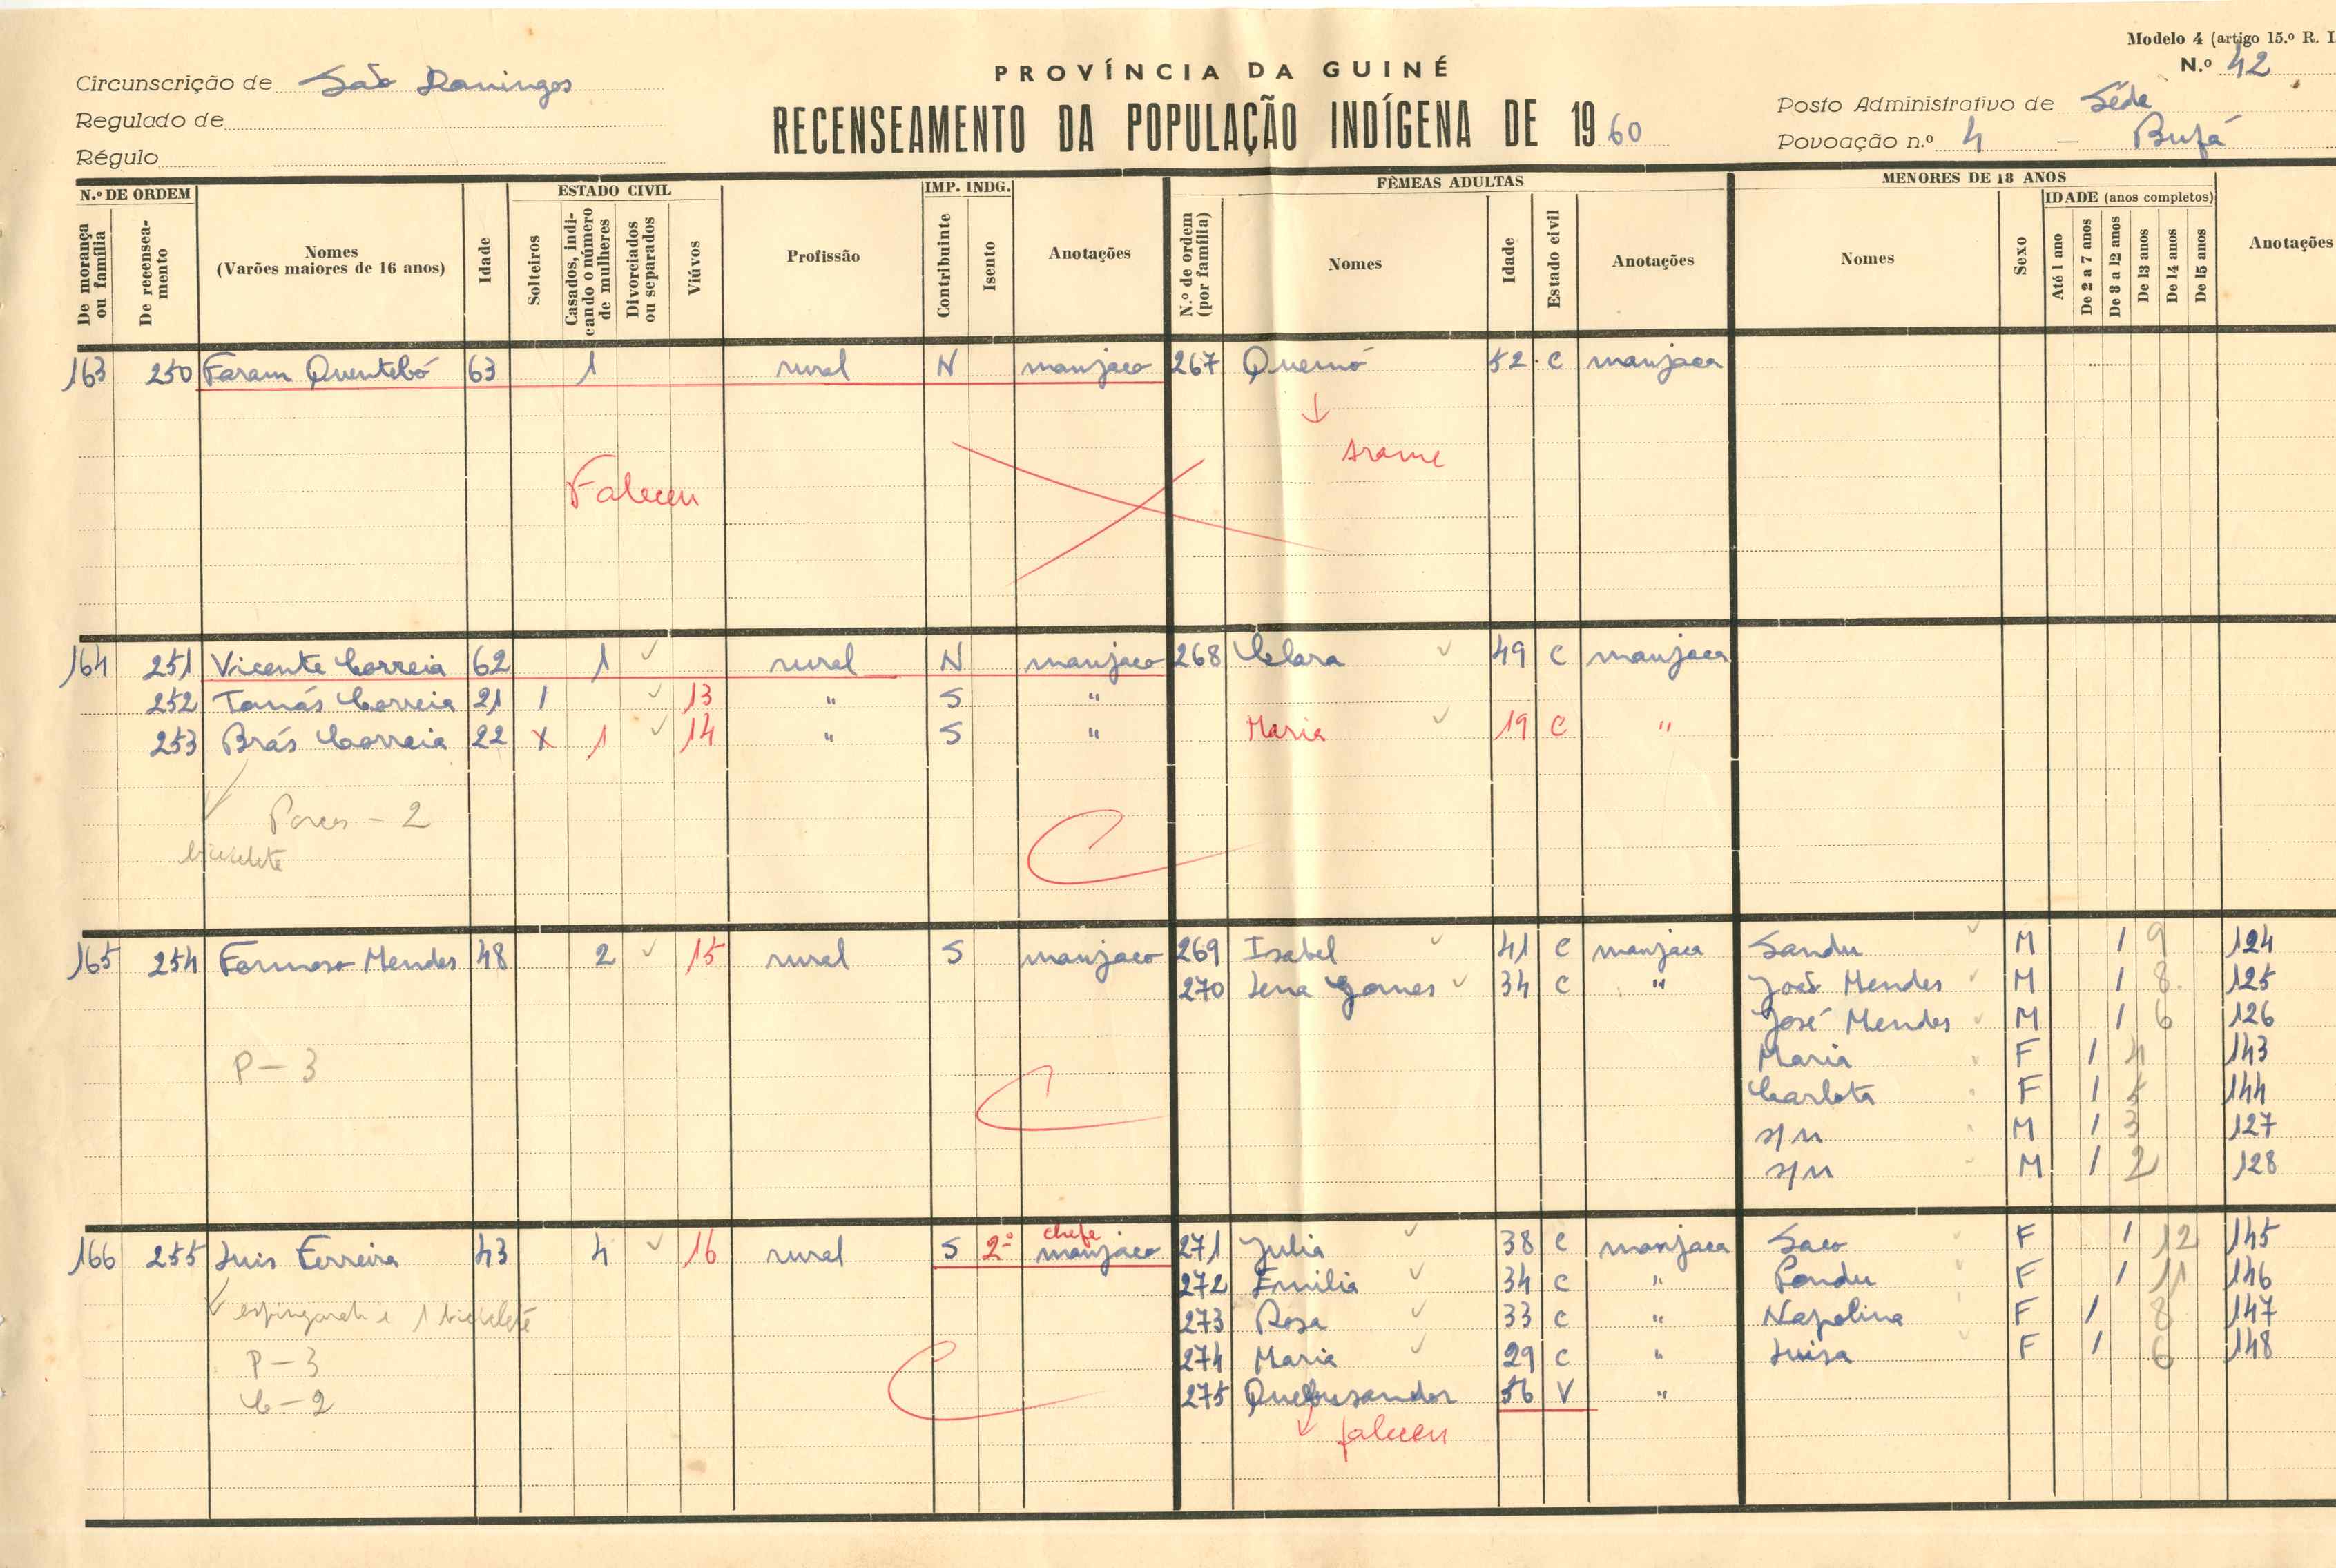 Modelo 4 (artigo 15.º R. I.
N.º 42
PROVÍNCIA DA GUINÉ
RECENSEAMENTO DA POPULAÇÃO INDÍGENA DE 1960
Circunscrição de São Domingos
Regulado de
Régulo
Posto Administrativo de Séde
Povoação n.º 4 — Bufá
N.º DE ORDEM
De morança ou família
De recenseamento
Nomes (Varões maiores de 16 anos)
Idade
ESTADO CIVIL
Solteiros
Casados, indicando o número de mulheres
Divorciados ou separados
Viúvos
Profissão
IMP. INDG.
Contribuinte
Isento
Anotações
FÊMEAS ADULTAS
N.º de ordem (por família)
Nomes
Idade
Estado civil
Anotações
MENORES DE 18 ANOS
Nomes
Sexo
IDADE (anos completos)
Até 1 ano
De 2 a 7 anos
De 8 a 12 anos
De 13 anos
De 14 anos
De 15 anos
Anotações
163 250 Faram Quentebó 63 1 rural N manjaco 267 Quemó 52 C manjaca
Arame
Faleceu
164 251 Vicente Correia 62 1 rural N manjaco 268 Clara 49 C manjaca
252 Tomás Correia 21 1 13 " S "
253 Brás Correia 22 X 1 14 " S " Maria 19 C "
Porcos - 2
bicicleta
165 254 Formoso Mendes 48 2 15 rural S manjaco 269 Isabel 41 C manjaca Sandu M 1 9 124
270 Lena Gomes 34 C " João Mendes M 1 8 125
José Mendes M 1 6 126
Maria F 1 4 143
P - 3
Carlota F 1 5 144
s/n M 1 3 127
s/n M 1 2 128
chefe
166 255 Luis Ferreira 43 4 16 rural S 2º manjaco 271 Julia 38 C manjaca Saco F 1 12 145
272 Emilia 34 C " Pandu F 1 11 146
espingarda e 1 bicicleta 273 Rosa 33 C " Napolina F 1 8 147
P - 3 274 Maria 29 C " Luisa F 1 6 148
C - 2 275 Quebusandor 56 V "
faleceu